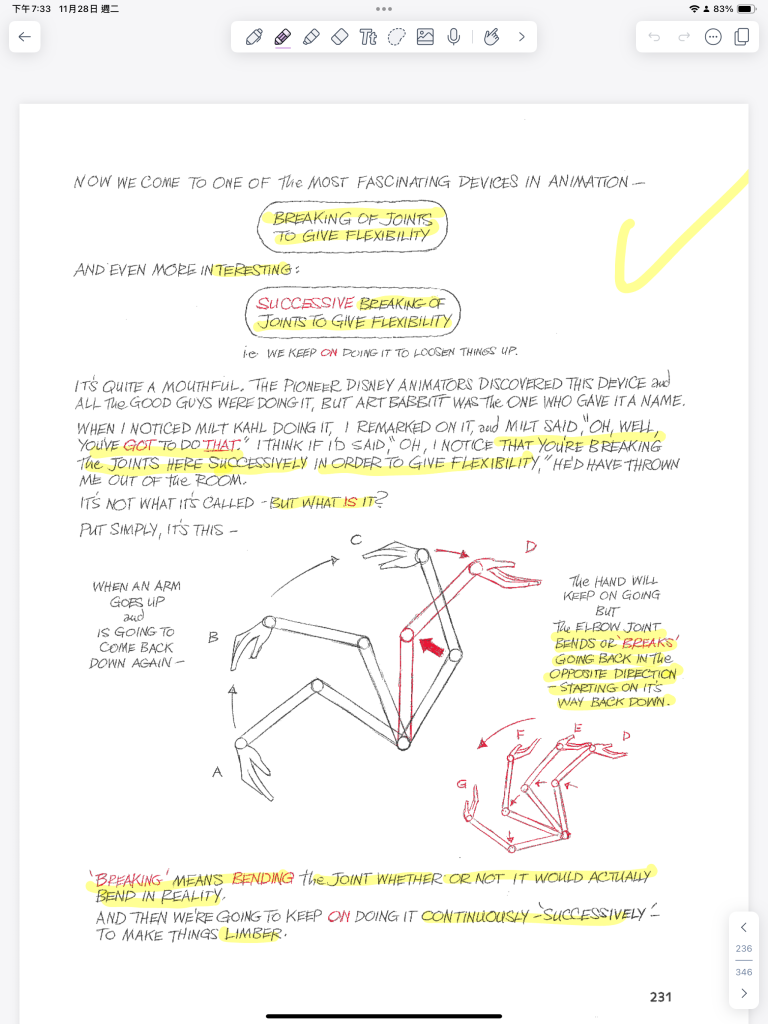 下午7:33 11月28日 週二
83%
Tt
NOW WE COME TO ONE OF The MOST FASCINATING DEVICES IN ANIMATION —
BREAKING OF JOINTS
TO GIVE FLEXIBILITY
AND EVEN MORE INTERESTING:
SUCCESSIVE BREAKING OF
JOINTS TO GIVE FLEXIBILITY
i.e WE KEEP ON DOING IT TO LOOSEN THINGS UP.
IT'S QUITE A MOUTHFUL. THE PIONEER DISNEY ANIMATORS DISCOVERED THIS DEVICE and
ALL The GOOD GUYS WERE DOING IT, BUT ART BABBITT WAS The ONE WHO GAVE IT A NAME.
WHEN I NOTICED MILT KAHL DOING IT, I REMARKED ON IT, and MILT SAID, "OH, WELL,
YOU'VE GOT TO DO THAT." I THINK IF I'D SAID, "OH, I NOTICE THAT YOU'RE BREAKING
The JOINTS HERE SUCCESSIVELY IN ORDER TO GIVE FLEXIBILITY," HE'D HAVE THROWN
ME OUT OF the ROOM.
IT'S NOT WHAT IT'S CALLED – BUT WHAT IS IT?
PUT SIMPLY, IT'S THIS –
C
D
WHEN AN ARM
GOES UP
and
IS GOING TO
COME BACK
DOWN AGAIN –
B
A
The HAND WILL
KEEP ON GOING
BUT
The ELBOW JOINT
BENDS OR 'BREAKS'
GOING BACK IN The
OPPOSITE DIRECTION
– STARTING ON IT'S
WAY BACK DOWN.
F
E
D
G
'BREAKING' MEANS BENDING the JOINT WHETHER OR NOT IT WOULD ACTUALLY
BEND IN REALITY.
AND THEN WE'RE GOING TO KEEP ON DOING IT CONTINUOUSLY – 'SUCCESSIVELY' –
TO MAKE THINGS LIMBER.
236
346
231